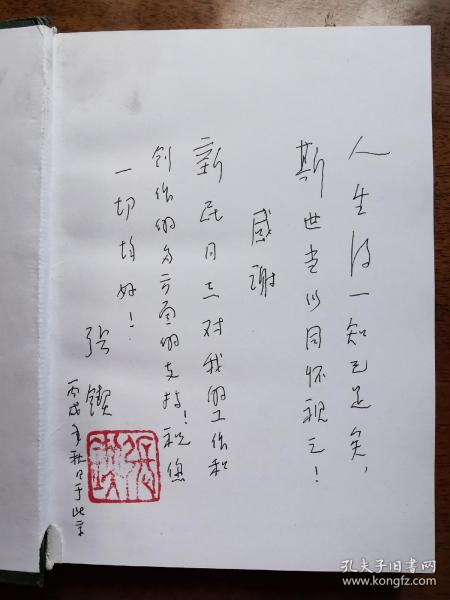 人生得一知己足矣，
斯世当以同怀视之！
感谢
新民同志对我的工作和
创作的多方面的支持！祝您
一切均好！
张锲
丙戌年秋日于北京
孔夫子旧书网
www.kongfz.com